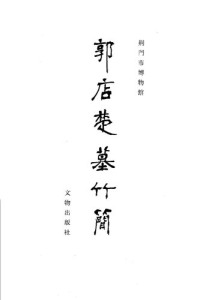 荆门市博物館
郭店楚墓竹簡
文物出版社